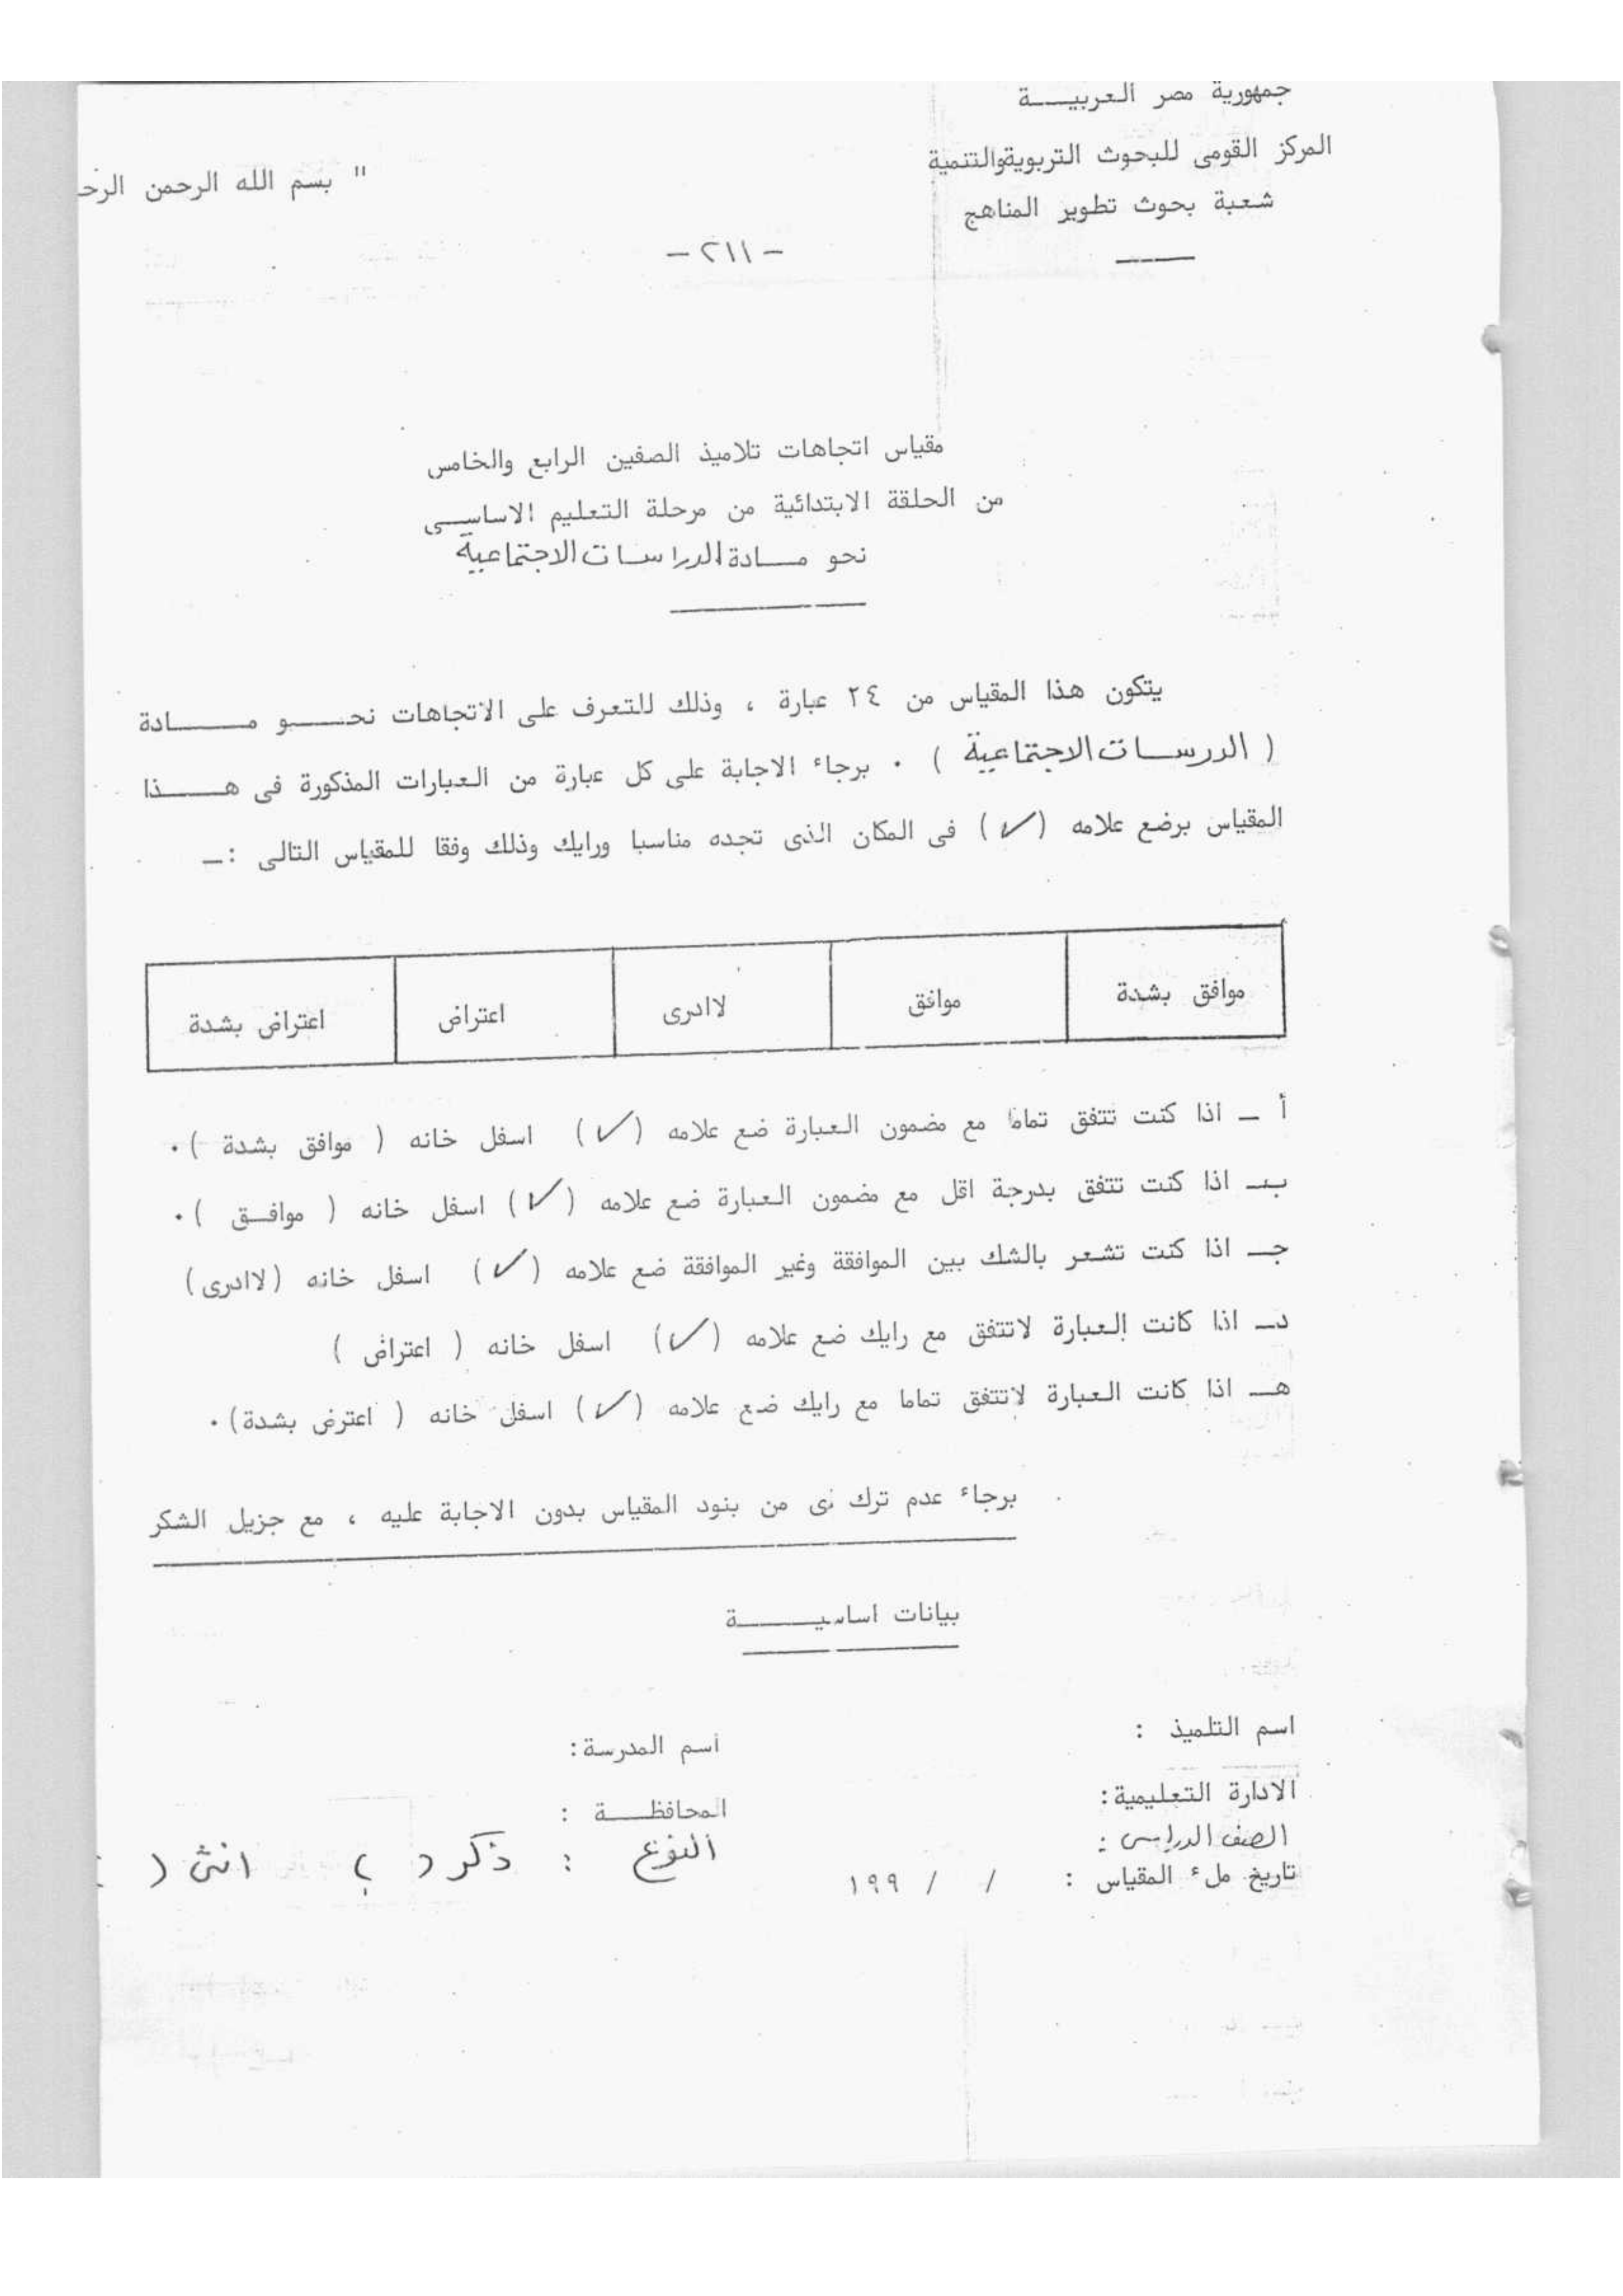 جمهورية مصر العربية
المركز القومى للبحوث التربويةوالتنمية
" بسم الله الرحمن الرح
شعبة بحوث تطوير المناهج
- ٢١١ -
مقياس اتجاهات تلاميذ الصفين الرابع والخامس
من الحلقة الابتدائية من مرحلة التعليم الاساسى
نحو مادة الدراسات الاجتماعية
يتكون هذا المقياس من ٢٤ عبارة ، وذلك للتعرف على الاتجاهات نحو مادة
( الدرسات الاجتماعية ) . برجاء الاجابة على كل عبارة من العبارات المذكورة فى هذا
المقياس برضع علامه (✓) فى المكان الذى تجده مناسبا ورايك وذلك وفقا للمقياس التالى :ـ
موافق بشدة موافق لاادرى اعتراض اعتراض بشدة
أ ـ اذا كنت تتفق تماما مع مضمون العبارة ضع علامه (✓) اسفل خانه ( موافق بشدة ).
بـ اذا كنت تتفق بدرجة اقل مع مضمون العبارة ضع علامه (✓) اسفل خانه ( موافق ).
جـ اذا كنت تشعر بالشك بين الموافقة وغير الموافقة ضع علامه (✓) اسفل خانه (لاادرى)
دـ اذا كانت العبارة لاتتفق مع رايك ضع علامه (✓) اسفل خانه ( اعتراض )
هـ اذا كانت العبارة لاتتفق تماما مع رايك ضع علامه (✓) اسفل خانه ( اعترض بشدة).
برجاء عدم ترك اى من بنود المقياس بدون الاجابة عليه ، مع جزيل الشكر
بيانات اساسية
اسم التلميذ : اسم المدرسة:
الادارة التعليمية: المحافظة :
الصف الدراسى : النوع : ذكر ( ) انثى ( )
تاريخ ملء المقياس : / / ١٩٩